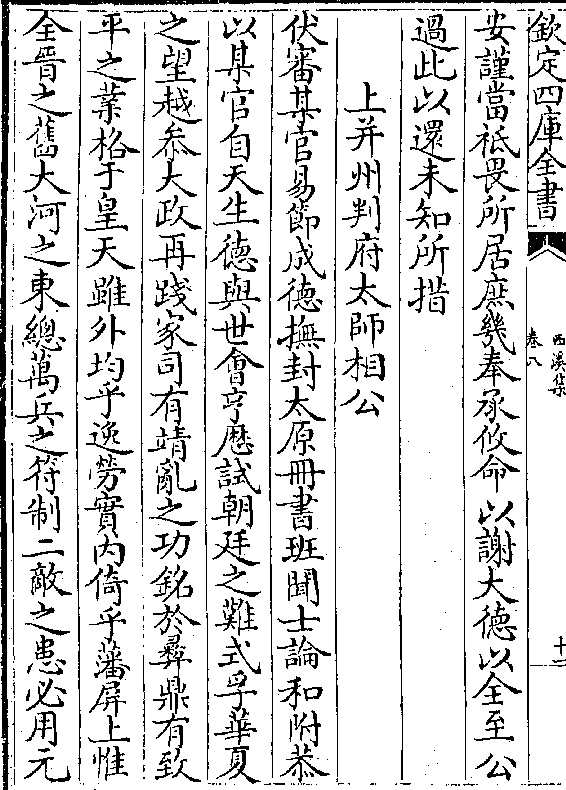 欽定四庫全書
西溪集
卷八
十二
安謹當祗畏所居庶幾奉承攸命以謝大德以全至公
過此以還未知所措
上并州判府太師相公
伏審某官易節成德撫封太原冊書班聞士論和附恭
以某官自天生德與世會亨歷試朝廷之難式孚華夏
之望越叅大政再踐冢司有靖亂之功銘於彞鼎有致
平之業格于皇天雖外均乎逸勞實内倚乎藩屏上惟
全晉之舊大河之東總萬兵之符制二敵之患必用元